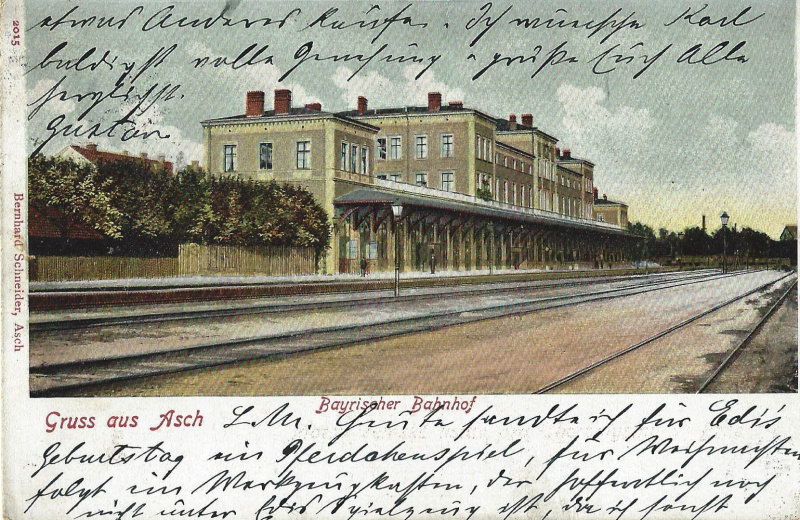 etwas Anderes kaufe. Ich wünsche Karl
baldigst volle Genesung & grüße Euch Alle
herzlichst.
Gustav
2015
Bernhard Schneider, Asch
Bayrischer Bahnhof
Gruss aus Asch
L. M. Heute sandte ich für Edi's
Geburtstag ein Pferdchenspiel, für Weihnachten
folgt ein Werkzeugkasten, der hoffentlich noch
nicht unter Edis Spielzeug ist, da ich sonst